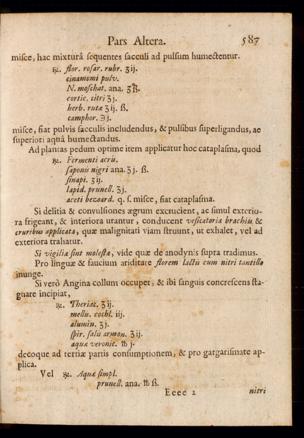 Pars Altera. 587
misce, hac mixturâ sequentes sacculi ad pulsum humectentur.
℞. flor. rosar. rubr. ʒij.
cinamomi pulv.
N. moschat. ana. ʒß.
cortic. citri ʒj.
herb. rutæ ʒij. ß.
camphor. ℈j.
misce, fiat pulvis sacculis includendus, & pulsibus superligandus, ac
superiori aquâ humectandus.
Ad plantas pedum optime item applicatur hoc cataplasma, quod
℞. Fermenti acris.
saponis nigri ana. ℥j. ß.
sinapi. ʒij.
lapid. prunell. ʒj.
aceti bezoard. q. s. misce, fiat cataplasma.
Si delitia & convulsiones ægrum excrucient, ac simul exterio-
ra frigeant, & interiora utantur, conducent vesicatoria brachiis &
cruribus applicata, quæ malignitati viam struunt, ut exhalet, vel ad
exteriora trahatur.
Si vigiliæ sint molestæ, vide quæ de anodynis supra tradimus.
Pro linguæ & faucium ariditate florem lactis cum nitri tantillo
inunge.
Si verò Angina collum occupet, & ibi sanguis concrescens sta-
guare incipiat,
℞. Theriac. ʒij.
mellis. cochl. iij.
aluminis. ʒj.
spir. salis armon. ʒij.
aquæ veronic. ℔ j.
decoque ad tertiæ partis consumptionem, & pro gargarismate ap-
plica.
Vel ℞. Aquæ simpl.
prunell. ana. ℔ ß.
Eeee 2 nitri